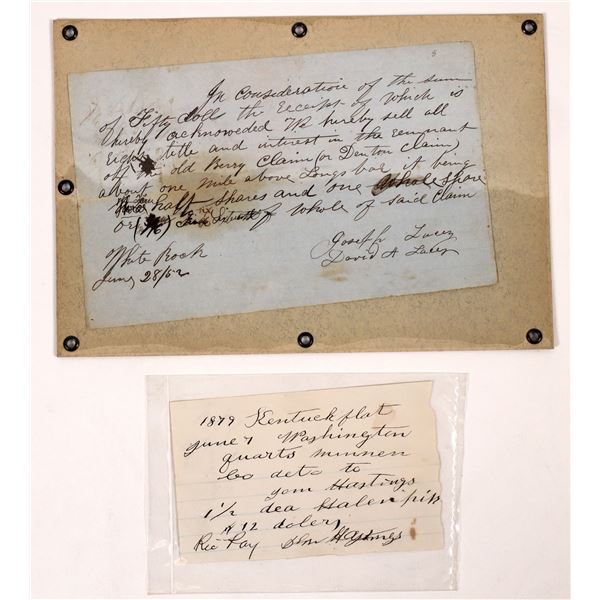 In consideration of the sum
of Fifty Doll the Receipt of which is
hereby acknoweded We hereby sell all
right title and interest in the remnant
of old Berry Claim (or Denton Claim)
about one mile above Longs bar it being
half shares and one whole share
or of whole of said Claim
White Rock
June 28/52
Joseph Lacey
David A Lacey
1879 Kentuck flat
June 7 Washington
quarts minnen
Co deto to
gom Hastings
1 1/2 dea Halen pik
$ 12 dolers
Rec Pay Hastings